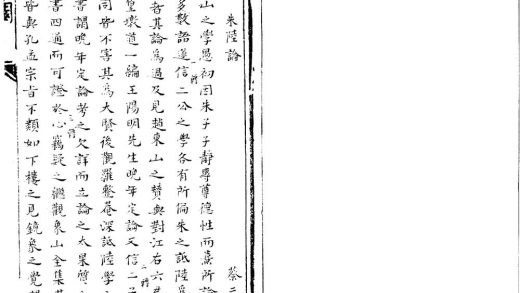 朱陸論 蔡二
山之學愚初因朱子子靜專尊德性而熹所論
多數語遂信二公之學各有所偏朱之詆陸爲
者其論爲過及見趙東山之贊與對江右六
皇墩道一編王陽明先生晚年定論又信二子
同皆不害其爲大賢後觀羅整菴深詆陸學
書謂晚年定論考之欠詳而立論之太果質
書四通而可證於心竊疑之繼觀象山全集其
皆與孔孟宗旨不類如下樓之見鏡象之覺